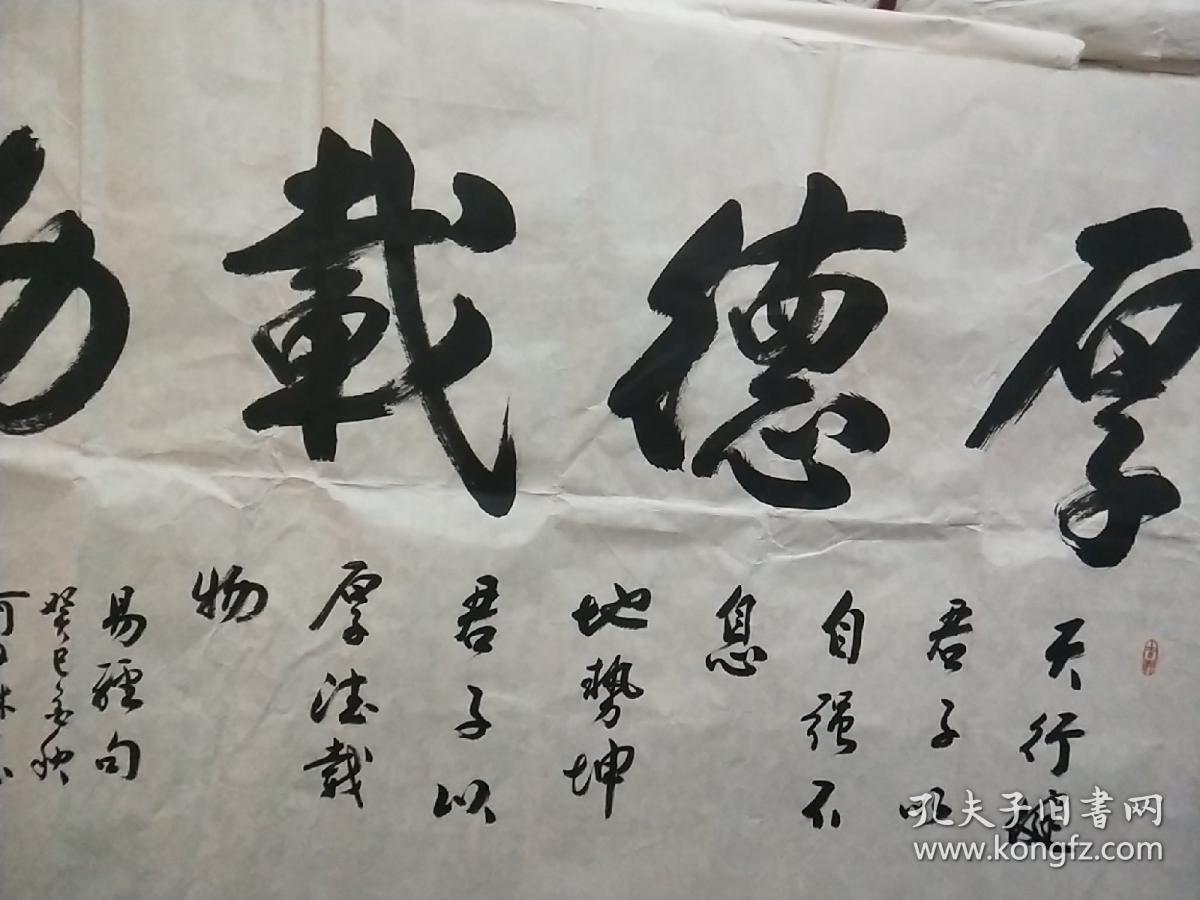 厚德載物
天行健
君子以
自强不
息
地勢坤
君子以
厚德載
物
易經句
癸巳冬
孔夫子旧书网
www.kongfz.com